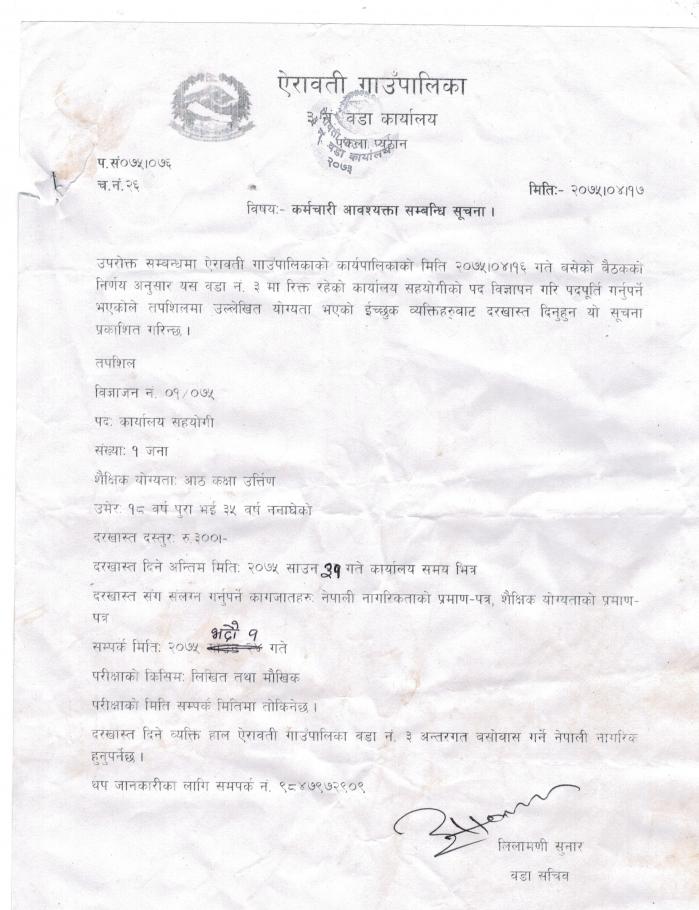 ऐरावती गाउँपालिका
३ नं वडा कार्यालय
प्यूठान
वडा कार्यालय
२०७३
प.सं०७५।०७६
च.नं.२६
मितिः- २०७५।०४।१७
विषयः- कर्मचारी आवश्यक्ता सम्बन्धि सूचना ।
उपरोक्त सम्बन्धमा ऐरावती गाउँपालिकाको कार्यपालिकाको मिति २०७५।०४।१६ गते बसेको बैठकको
निर्णय अनुसार यस वडा नं. ३ मा रिक्त रहेको कार्यालय सहयोगीको पद विज्ञापन गरि पदपूर्ति गर्नुपर्ने
भएकोले तपशिलमा उल्लेखित योग्यता भएको ईच्छुक व्यक्तिहरुबाट दरखास्त दिनुहुन यो सूचना
प्रकाशित गरिन्छ ।
तपशिल
विज्ञाजन नं. ०१/०७५
पदः कार्यालय सहयोगी
संख्याः १ जना
शैक्षिक योग्यताः आठ कक्षा उर्त्तिण
उमेरः १८ वर्ष पुरा भई ३५ वर्ष ननाघेको
दरखास्त दस्तुरः रु.३००।-
दरखास्त दिने अन्तिम मितिः २०७५ साउन ३१ गते कार्यालय समय भित्र
दरखास्त संग संलग्न गर्नुपर्ने कागजातहरुः नेपाली नागरिकताको प्रमाण-पत्र, शैक्षिक योग्यताको प्रमाण-
पत्र
सम्पर्क मितिः २०७५ भदौ १ गते
परीक्षाको किसिमः लिखित तथा मौखिक
परीक्षाको मिति सम्पर्क मितिमा तोकिनेछ ।
दरखास्त दिने व्यक्ति हाल ऐरावती गाउँपालिका वडा नं. ३ अन्तरगत बसोवास गर्ने नेपाली नागरिक
हुनुपर्नेछ ।
थप जानकारीका लागि समपर्क नं. ९८४७९७२९०९
लिलामणी सुनार
वडा सचिव